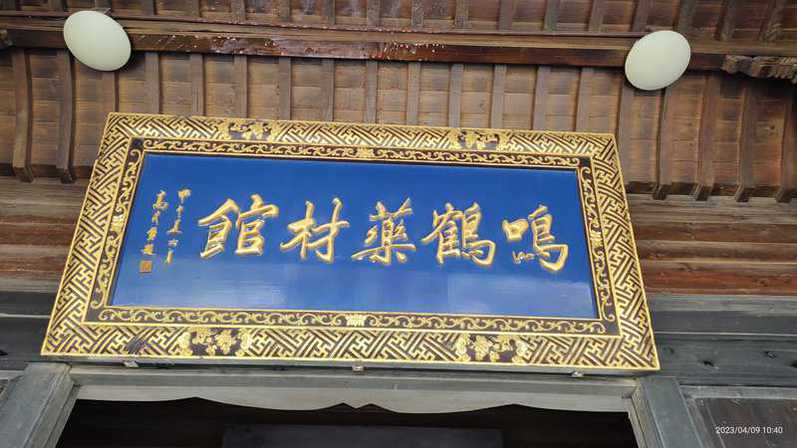 鳴鶴藥材館
2023/04/09 10:40